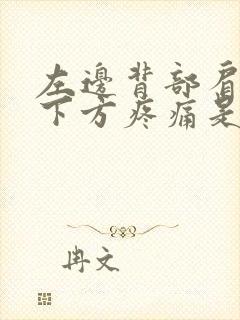 左邊背部肩
下方疼痛是
冉文